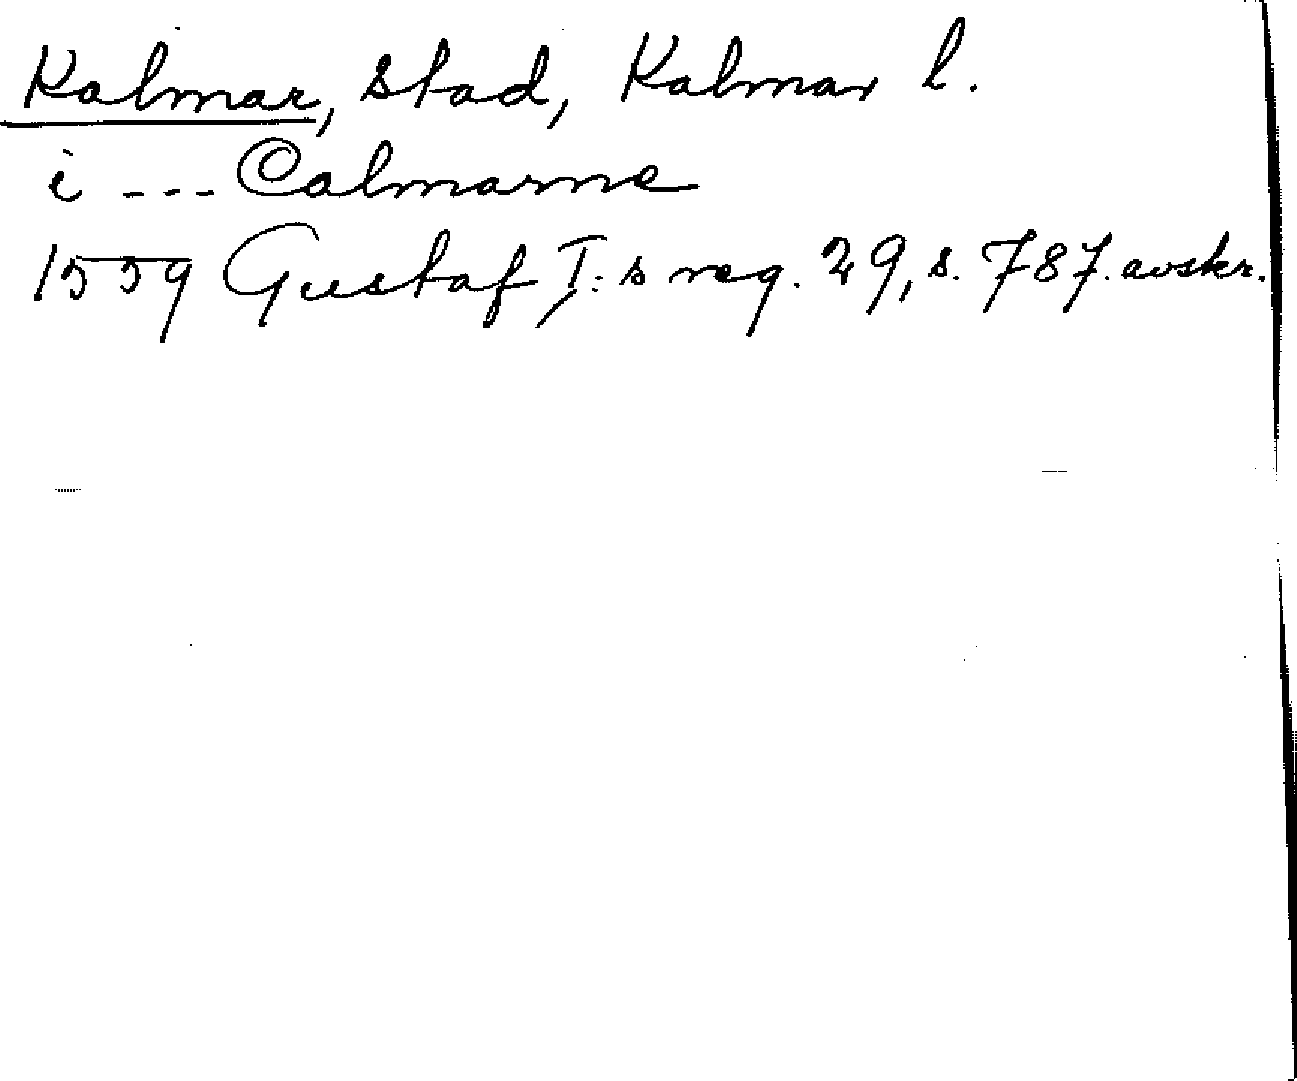 Kalmar, stad, Kalmar l.
i --- Calmarne
1559 Gustaf I:s reg. 29, s. 787. avskr.